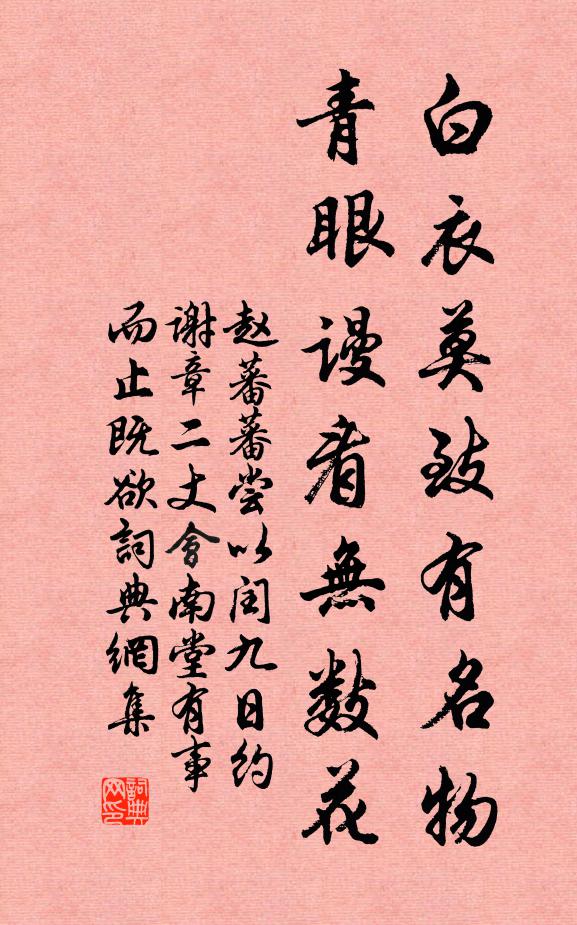 白衣莫致有名物
青眼谩看無数花
赵蕃蕃尝以闰九日约
谢章二丈會南堂有事
而止既欲詞典網集
詞典网印